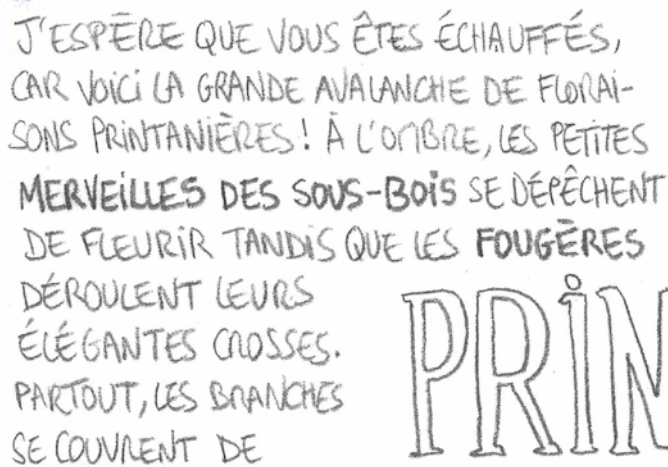 J'ESPÈRE QUE VOUS ÊTES ÉCHAUFFÉS,
CAR VOICI LA GRANDE AVALANCHE DE FLORAI-
SONS PRINTANIÈRES ! À L'OMBRE, LES PETITES
MERVEILLES DES SOUS-BOIS SE DÉPÊCHENT
DE FLEURIR TANDIS QUE LES FOUGÈRES
DÉROULENT LEURS
ÉLÉGANTES CROSSES.
PARTOUT, LES BRANCHES
SE COUVRENT DE
PRIN